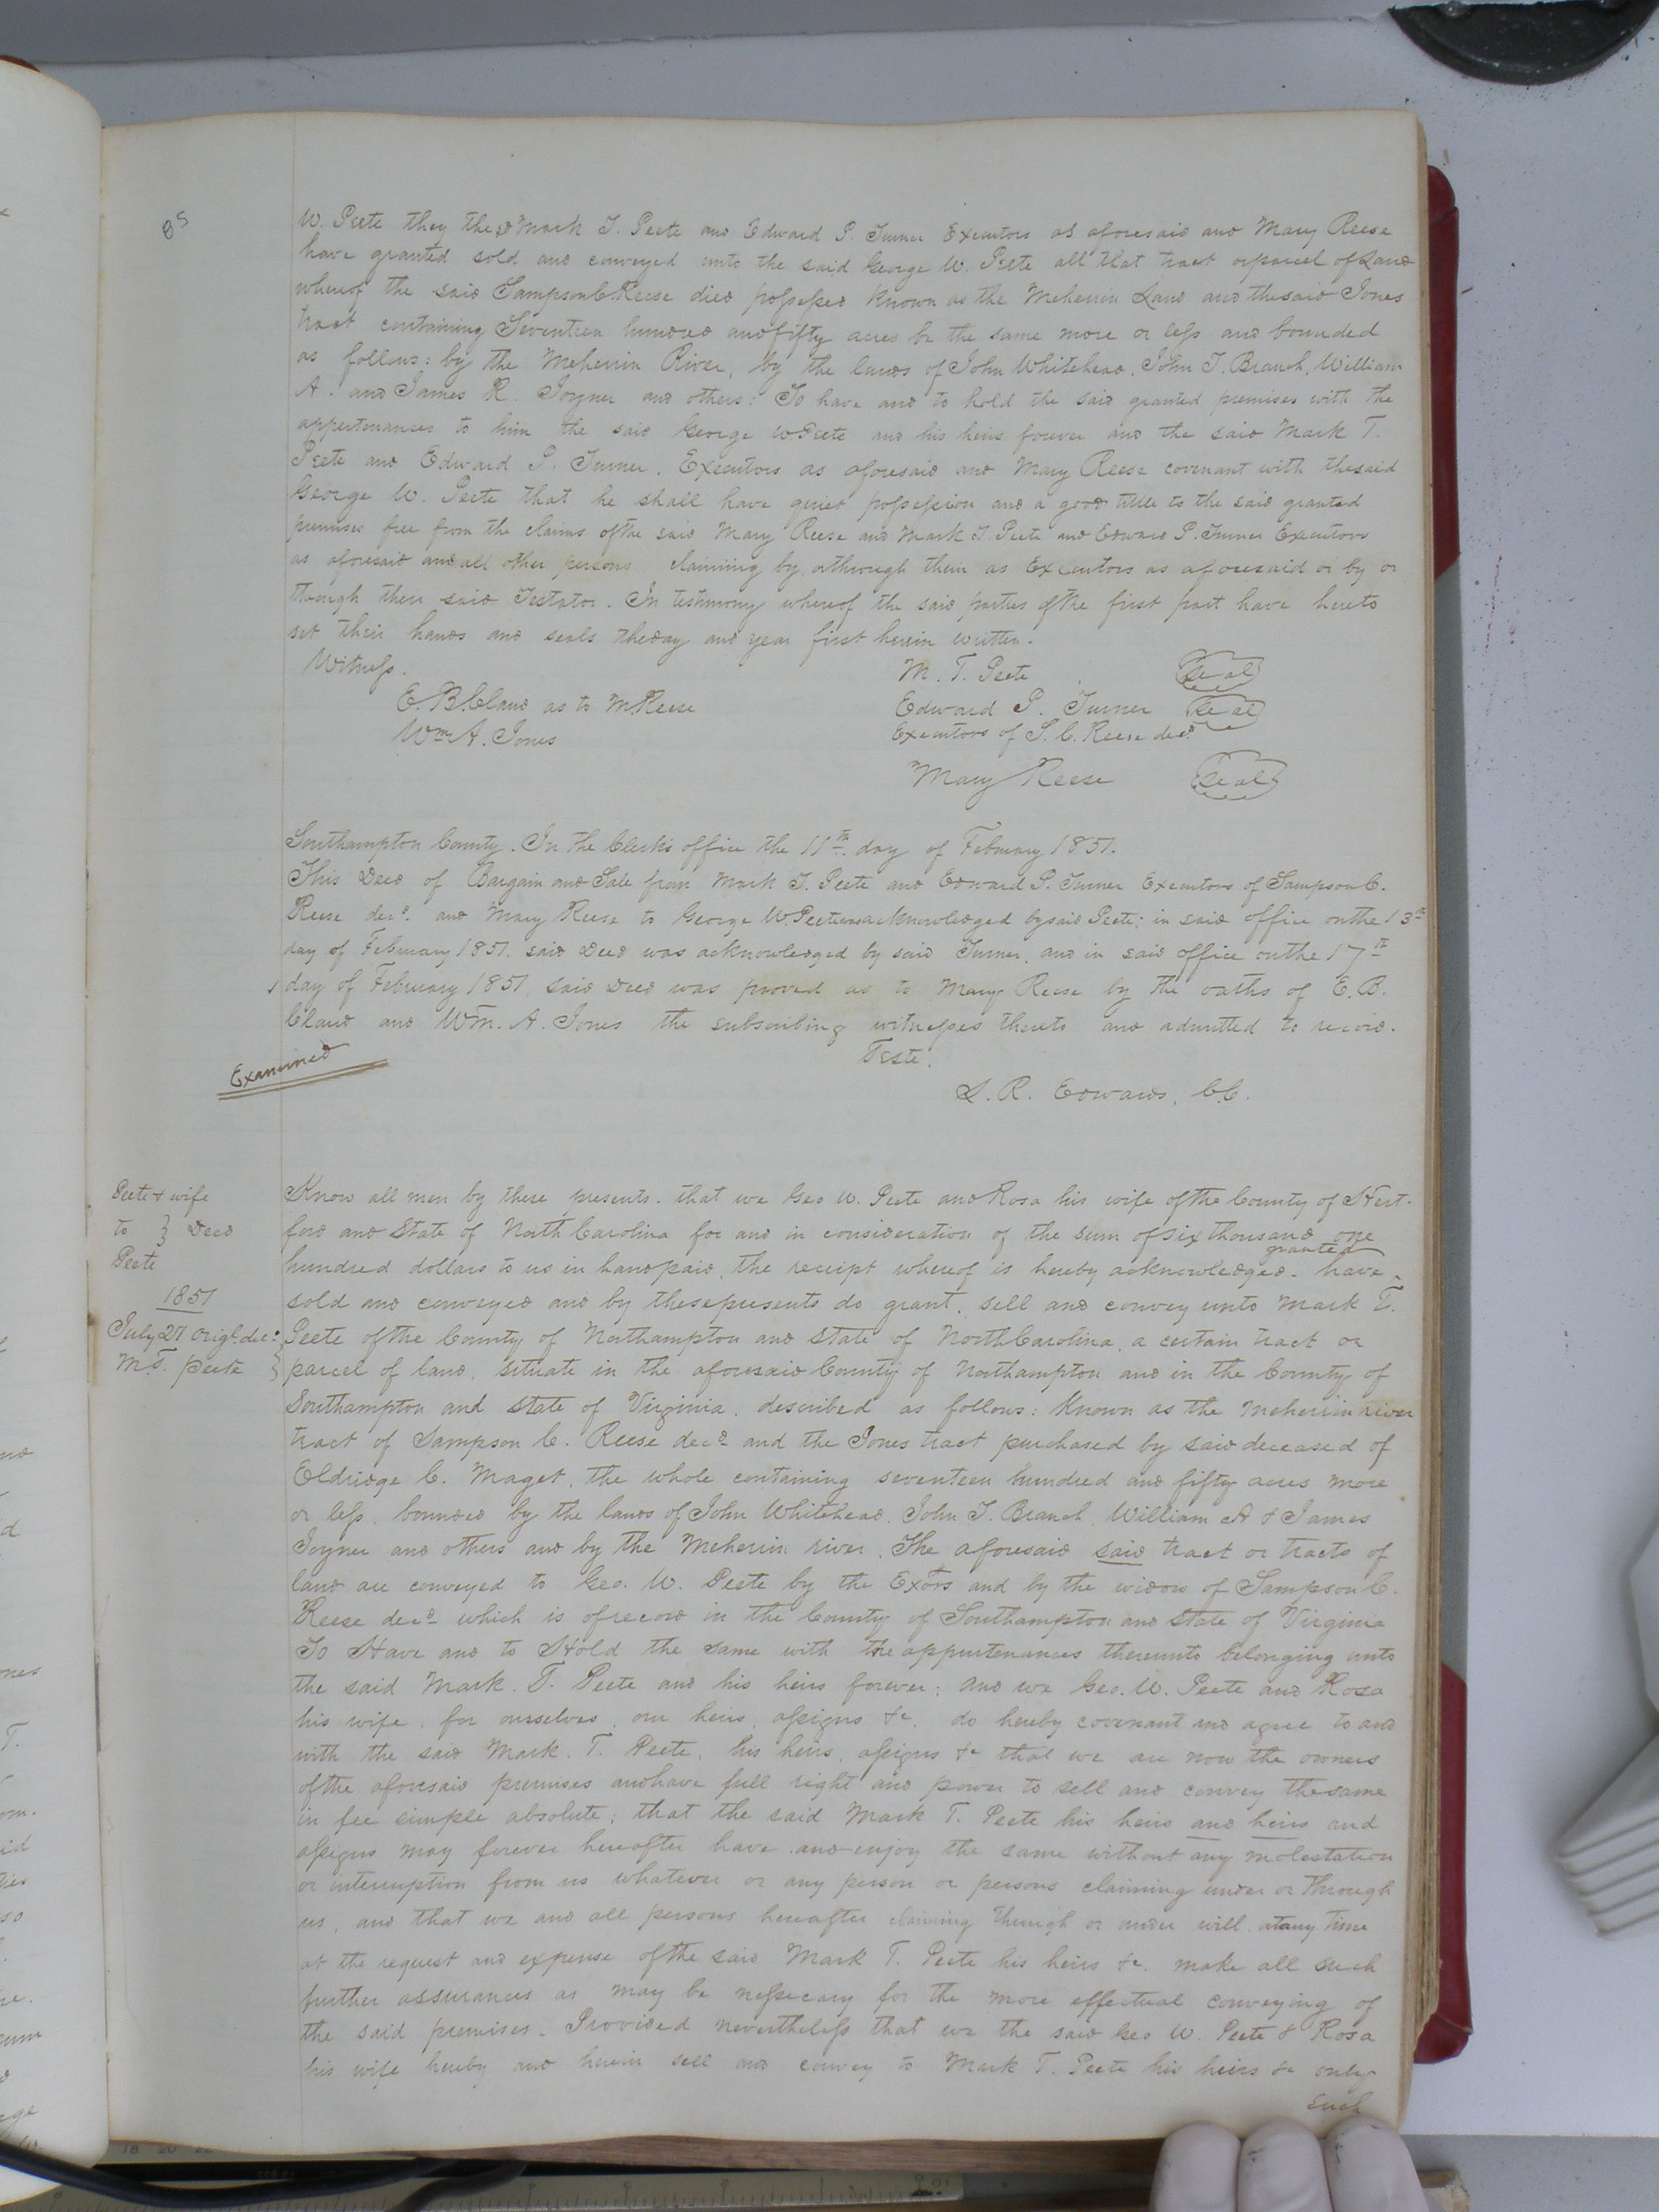 85
W. Peete they the sd Mark T. Peete and Edward P. Turner Executors as aforesaid and Mary Reese
have granted sold and conveyed unto the said George W. Peete all that tract or parcel of Land
whereof the said Sampson C. Reese died possessed known as the Meherrin Land and the said Jones
tract containing Seventeen hundred and fifty acres be the same more or less and bounded
as follows: by the Meherrin River, by the lands of John Whitehead, John T. Branch, William
A. and James R. Joyner and others: To have and to hold the said granted premises with the
appertenances to him the said George W Peete and his heirs forever and the said Mark T.
Peete and Edward P. Turner, Executors as aforesaid and Mary Reese covenant with the said
George W. Peete that he shall have quiet possession and a good title to the said granted
premises free from the claims of the said Mary Reese and Mark T. Peete and Edward P. Turner Executors
as aforesaid and all other persons claiming by or through them as Executors as aforesaid or by or
through their said Testator. In testimony whereof the said parties of the first part have hereto
set their hands and seals the day and year first herein written.
Witness.
M. T. Peete Seal
E. B. Claud as to M. Reese
Edward P. Turner Seal
Wm A. Jones
Executors of S. C. Reese decd
Mary Reese Seal
Southampton County. In the Clerk's office the 11th day of February 1851.
This Deed of Bargain and Sale from Mark T. Peete and Edward P. Turner Executors of Sampson C.
Reese decd. and Mary Reese to George W Peete was acknowledged by said Peete; in said office on the 13th
day of February 1851. said Deed was acknowledged by said Turner, and in said office on the 17th
day of February 1851. said Deed was proved as to Mary Reese by the oaths of E. B.
Claud and Wm. A. Jones the subscribing witnesses thereto and admitted to record.
Examined
Teste,
L. R. Edwards, C.C.
Peete & wife
to } Deed
Peete
1851
July 27 Origl. decd
M. T. Peete }
Know all men by these presents. that we Geo W. Peete and Rosa his wife of the County of Hert-
ford and State of North Carolina for and in consideration of the sum of six thousand one
hundred dollars to us in hand paid, the receipt whereof is hereby acknowledged. have granted
sold and conveyed and by these presents do grant, sell and convey unto Mark T.
Peete of the County of Northampton and State of North Carolina, a certain tract or
parcel of land, situate in the aforesaid County of Northampton and in the County of
Southampton and State of Virginia. described as follows: Known as the Meherrin river
tract of Sampson C. Reese decd and the Jones tract purchased by said deceased of
Eldridge C. Maget, the whole containing seventeen hundred and fifty acres more
or less, bounded by the lands of John Whitehead, John T. Branch, William A & James
Joyner and others and by the Meherrin river. The aforesaid said tract or tracts of
land are conveyed to Geo. W. Peete by the Exors and by the widow of Sampson C.
Reese decd which is of record in the County of Southampton and State of Virginia
To Have and to Hold the same with the appurtenances thereunto belonging unto
the said Mark. T. Peete and his heirs forever; and we Geo. W. Peete and Rosa
his wife, for ourselves, our heirs, assigns &c. do hereby covenant and agree to and
with the said Mark. T. Peete, his heirs, assigns &c that we are now the owners
of the aforesaid premises and have full right and power to sell and convey the same
in fee simple absolute; that the said Mark T. Peete his heirs and heirs and
assigns may forever hereafter have and enjoy the same without any molestation
or interruption from us whatever or any person or persons claiming under or through
us, and that we and all persons hereafter claiming through or under will at any time
at the request and expense of the said Mark T. Peete his heirs &c. make all such
further assurances as may be nessecary for the more effectual conveying of
the said premises. Provided nevertheless that we the said Geo W. Peete & Rosa
his wife hereby and herein sell and convey to Mark T. Peete his heirs &c only
such